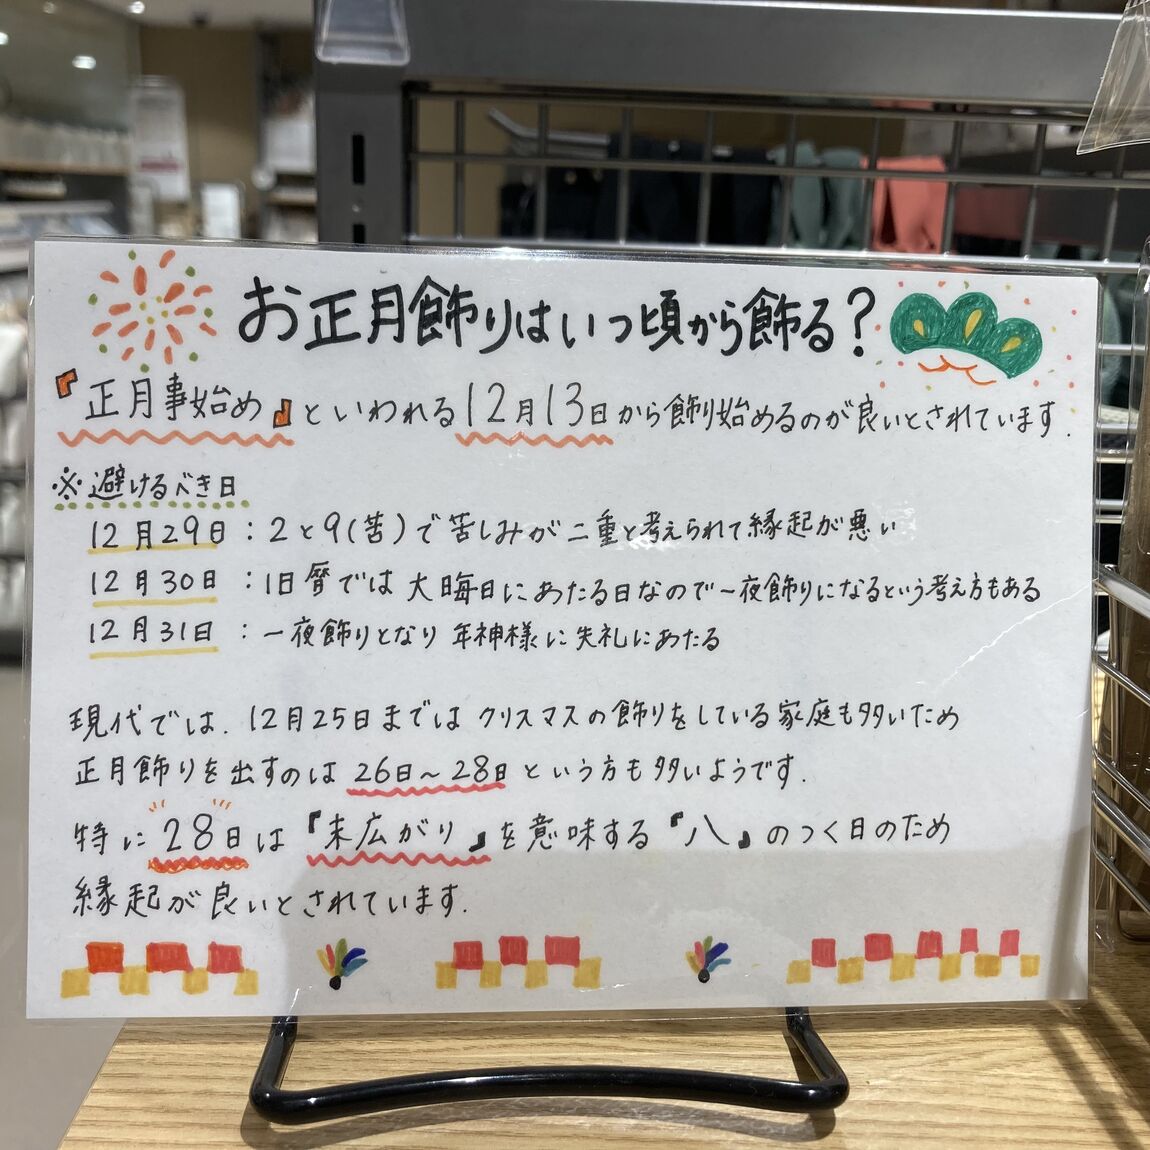 お正月飾りはいつ頃から飾る？
『正月事始め』といわれる12月13日から飾り始めるのが良いとされています.
※避けるべき日
12月29日：2と9(苦)で苦しみが二重と考えられて縁起が悪い
12月30日：1日暦では大晦日にあたる日なので一夜飾りになるという考え方もある
12月31日：一夜飾りとなり年神様に失礼にあたる
現代では.12月25日まではクリスマスの飾りをしている家庭も多いため
正月飾りを出すのは26日～28日という方も多いようです.
特に28日は『末広がり』を意味する『八』のつく日のため
縁起が良いとされています.